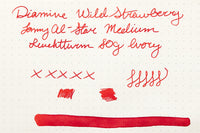 Diamine Wild Strawberry
Lamy Al-Star Medium
Leuchtturm 80g Ivory
x x x x x